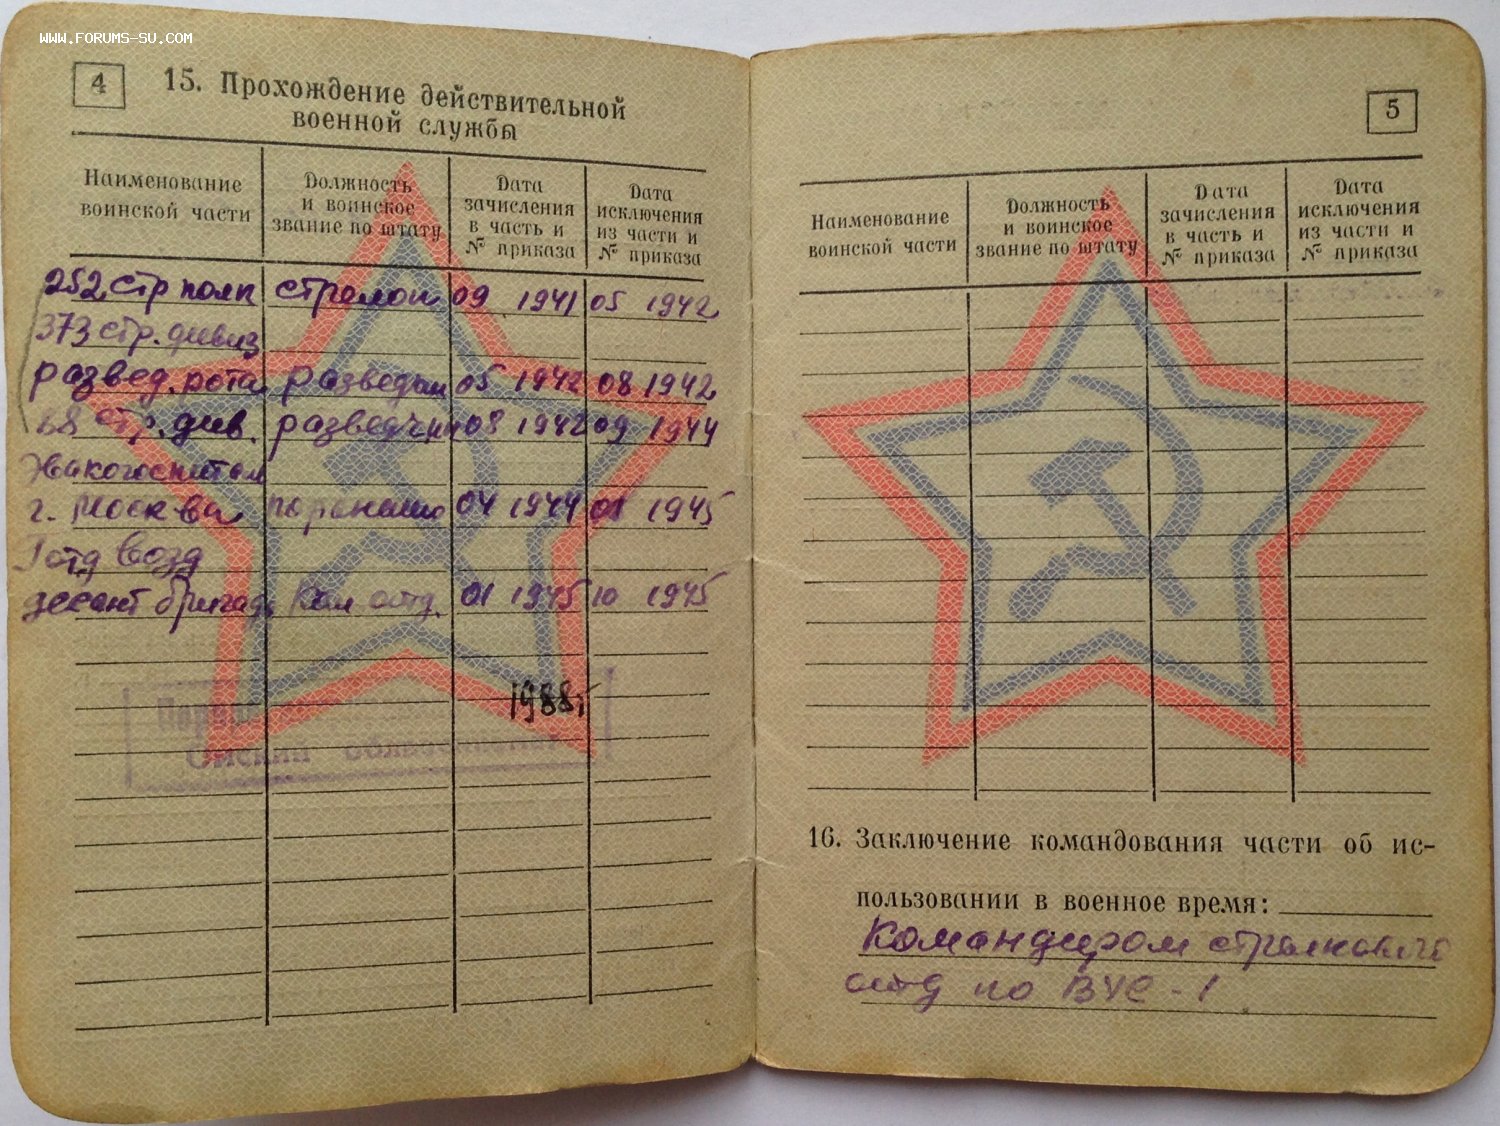 WWW.FORUMS-SU.COM
4
15. Прохождение действительной
военной службы
Наименование
воинской части
Должность
и воинское
звание по штату
Дата
зачисления
в часть и
№ приказа
Дата
исключения
из части и
№ приказа
252 стр полк стрелок 09 1941 05 1942
373 стр. дивиз
развед. рота разведчик 05 1942 08 1942
стр. див. разведчик 08 1942 09 1944
Эвакогоспитал
г. Москва по ранению 04 1944 01 1945
отд возд
десант бригада Ком отд. 01 1945 10 1945
1988г
Омский
5
Наименование
воинской части
Должность
и воинское
звание по штату
Дата
зачисления
в часть и
№ приказа
Дата
исключения
из части и
№ приказа
16. Заключение командования части об ис-
пользовании в военное время:
Командиром стрелкового
отд по ВУС - 1